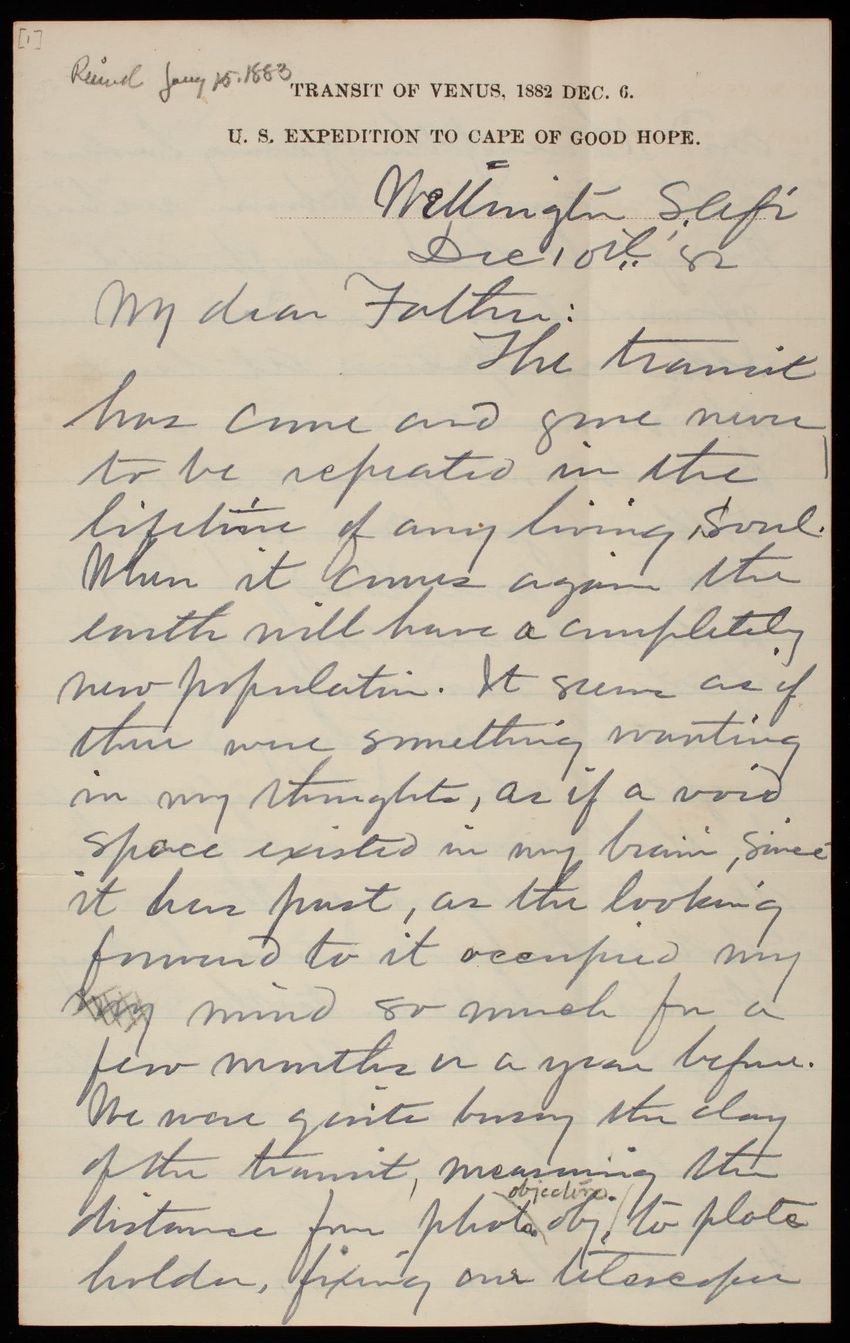 [1]
Rec'd Jany 15. 1883
TRANSIT OF VENUS, 1882 DEC. 6.
U. S. EXPEDITION TO CAPE OF GOOD HOPE.
Wellington S. Afr
Dec 10th '82
My dear Father:
The transit
has come and gone never
to be repeated in the
lifetime of any living soul.
When it comes again the
earth will have a completely
new population. It seems as if
there were something wanting
in my thoughts, as if a void
space existed in my brain, since
it has past, as the looking
forward to it occupied my
my mind so much for a
few months or a year before.
We were quite busy the day
of the transit, measuring the
objective.
distance from photo obj. to plate
holder, fixing our telescopes